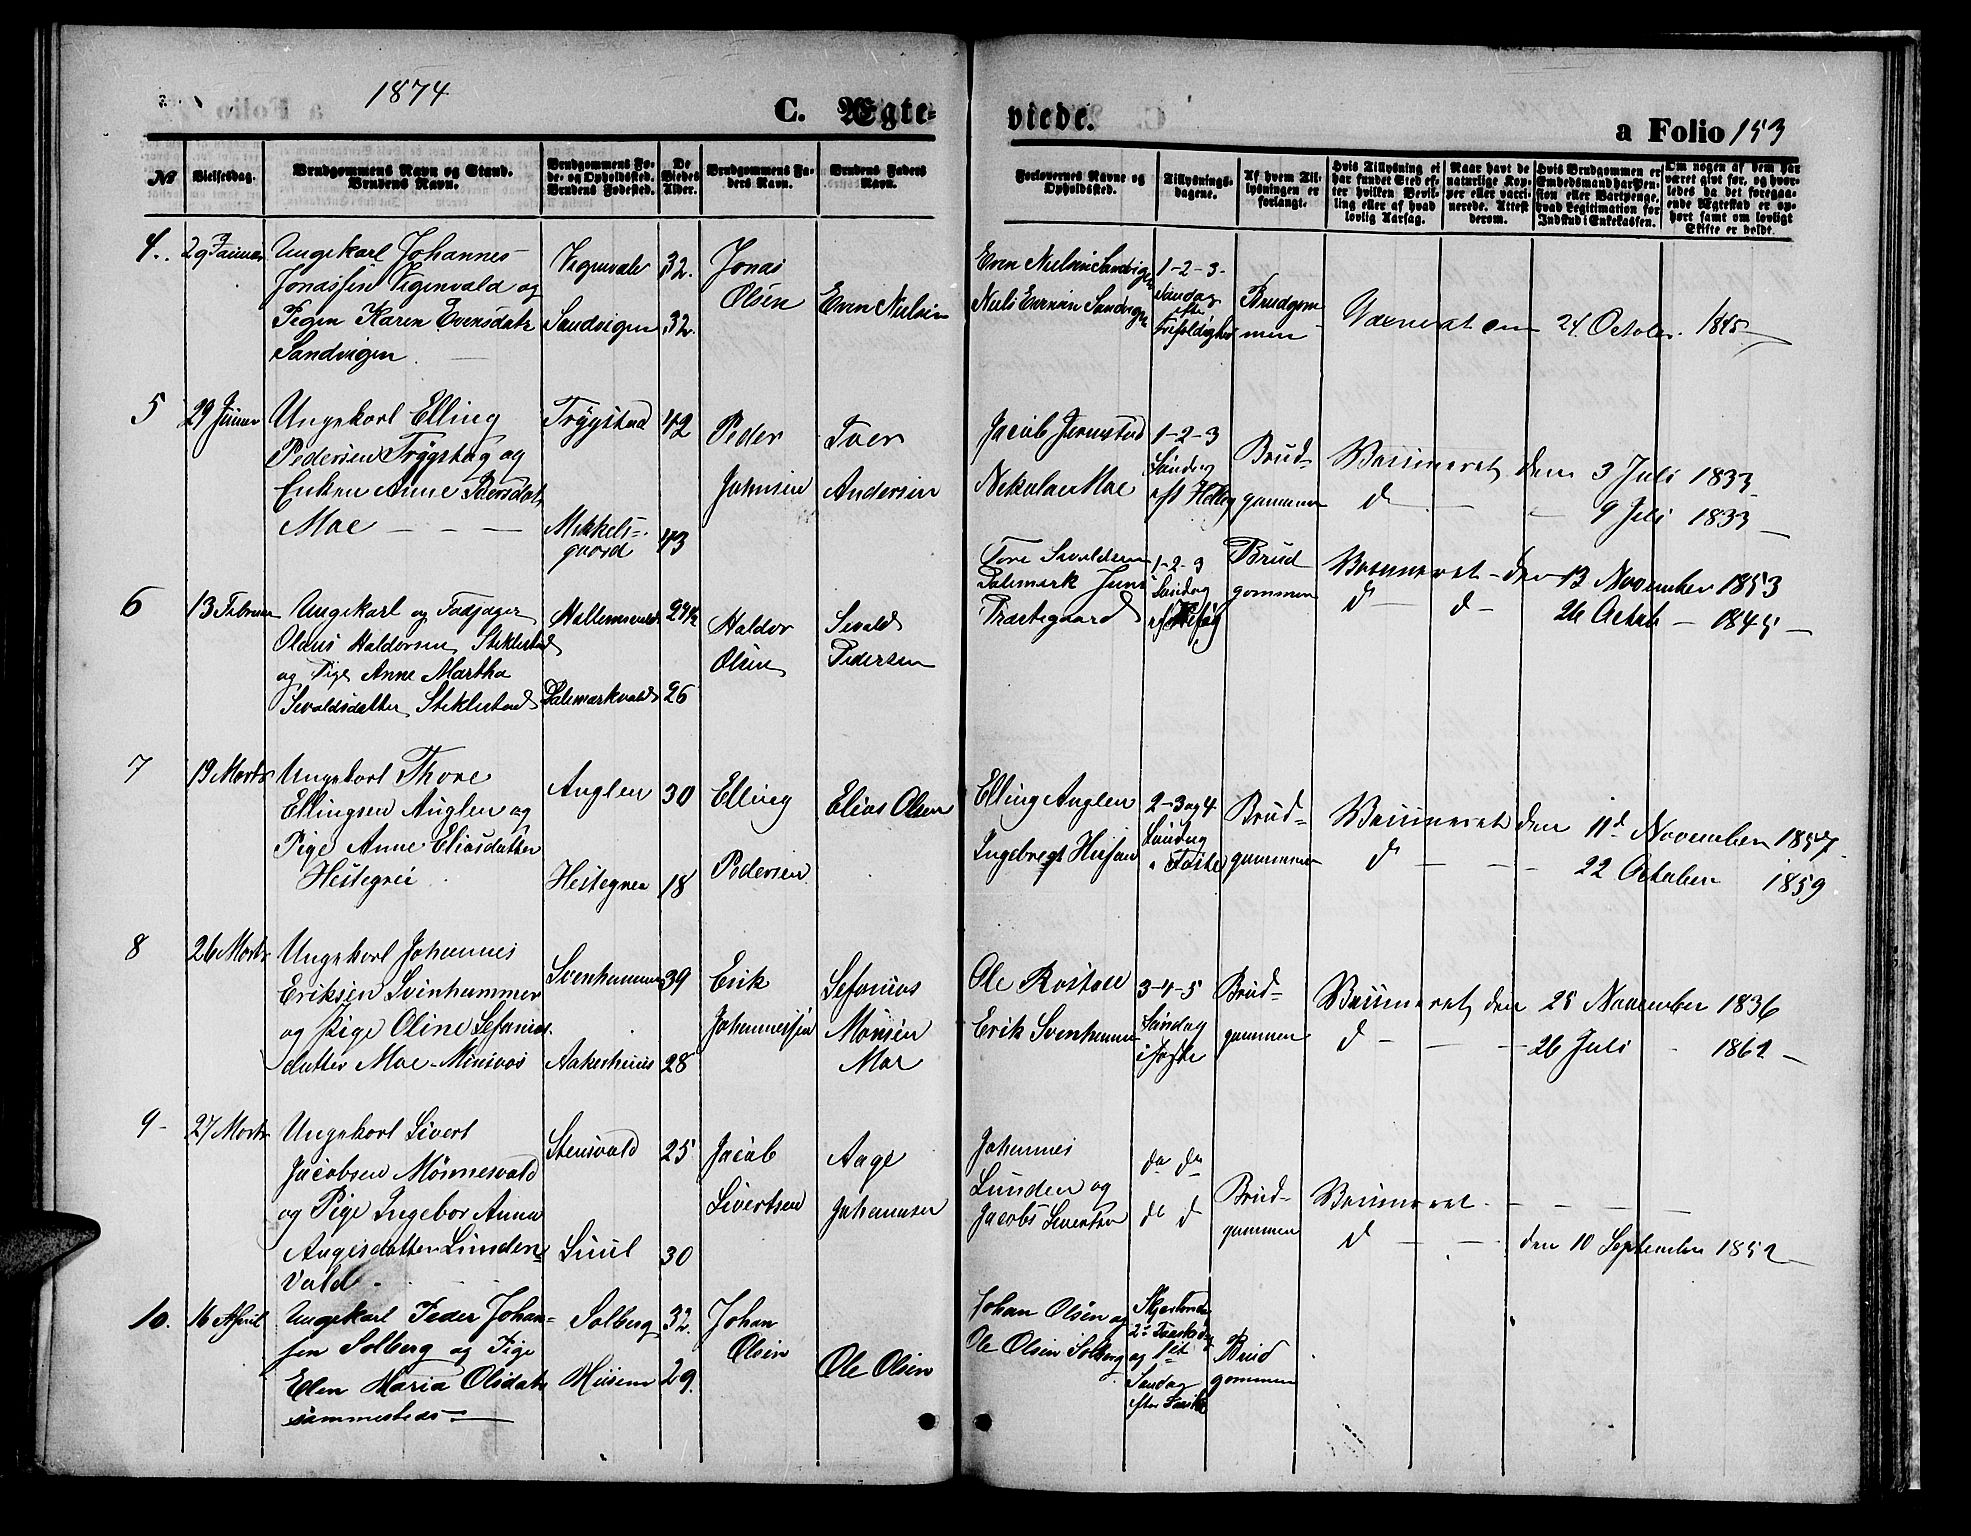 1874
C. Ægte-
viede.
a Folio 153
No
Vielsesdag.
Brudgommens Navn og Stand.
Brudens Navn.
Brudgommens Fø-
de- og Opholdsted.
Brudens Fødested.
De
Viedes
Alder.
Brudgommens Fa-
ders Navn.
Brudens Faders
Navn.
Forlovernes Navne og
Opholdssted.
Tillysnings-
dagene.
Af hvem Til-
lysningen er
forlangt.
Hvis Tillysning ei
har fundet Sted ef-
ter hvilken Bevil-
ling eller af hvad
lovlig Aarsag.
Naar havt de
naturlige Kop-
per eller vacci-
nerede. Attest
derom.
Hvis Brudgommen er
Embedsmand har Pen-
sion eller Vartpenge,
hvad Legitimation for
Indskud i Enkekassen.
Om nogen af dem har
været givt før, og hvor-
ledes da det foregaa-
ende Ægteskab er op-
hørt samt om lovligt
Skifte er holdt.
4.
29 Januar
Ungekarl Johannes
Jonassen Vigenvald og
Pigen Karen Evensdatr
Sandvigen
Sandvigen
32.
32.
Jonas
Olsen
Even Nielsen
Even Nielsen Sandvigen
Niels Evensen Sandvigen
1-2-3-
Søndag
efter
Brudgom
men
24 October 1845
5
29 Januar
Ungekarl Elling
Pedersen Trygstag og
Enken Anne Iversdatr
Moe
Trygstad
Mikkels-
gaard
42
43
Peder
Johnsen
Iver
Andersen
Jacob
Nikolai Moe
1-2-3
Søndag
Brud-
gommen
Vaccineret den 3 Juli 1833
d 9 Juli 1833
6
13 Februar
Ungekarl og
Olaus Haldorsen Stiklestad
og Pige Anne Martha
Sivaldsdatter Stiklestad
Hallemsvald
Dalemarkvald
24½
26
Haldor
Olsen
Sivald
Pedersen
Tore Sivaldsen
Dalemark
Præstegaard
1-2-3
Søndag
Brud
gommen
Vaccineret den 13 November 1853
d d 26 Octob 1845
7
19 Marts
Ungekarl Thore
Ellingsen Auglen og
Pige Anne Eliasdatter
Heitegrei
Auglen
30
18
Elling
Pedersen
Elias Olsen
Elling Auglen
Ingebregt
2-3 og 4
Søndag
i Faste
Brud-
gommen
Vaccineret den 11d November 1857
d 22 October 1859
8
26 Marts
Ungekarl Johannes
Eriksen Svinhammer
og Pige Oline Sefanias
datter Moe
39
28
Erik
Johannessen
Sefanias
Monsen
Moe
Ole
Erik Svenhammer
3-4-5
Søndag
i Faste
Brud-
gommen
Vaccineret den 25 November 1836
d 26 Juli 1862
9
27 Marts
Ungekarl Sivert
Jacobsen Mønnesvald
og Pige Ingebor Anna
Aagesdatter Lunden-
vald
25
30
Jacob
Sivertsen
Aage
Johannsen
Johannes
Lunden og
Jacob Sivertsen
do do
do d
Brud-
gommen
Vaccineret
d den 10 September 1852
10.
16 April
Ungekarl Peder Johan-
sen Solberg og Pige
Elen Maria Olsdatr
sammesteds
Solberg
32.
29.
Johan
Olsen
Ole Olsen
Johan Olsen og
Ole Olsen Solberg
og 1ste
Søndag
efter Paaske
Brud
gommen